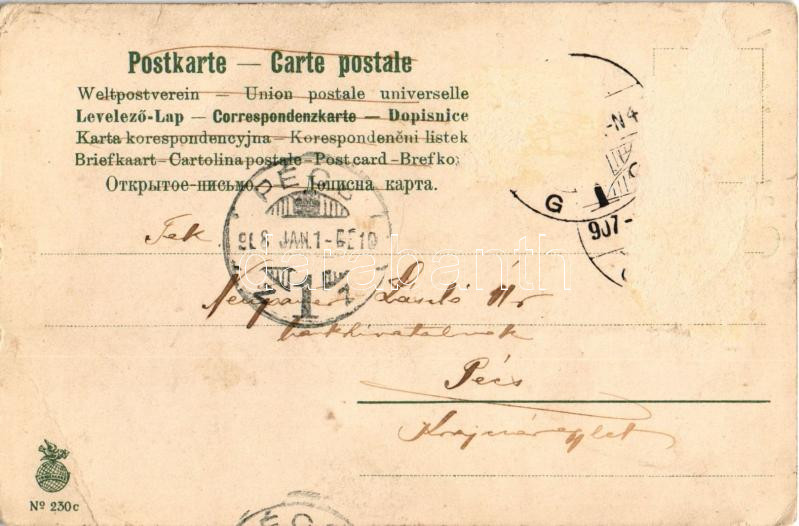 Postkarte — Carte postale
Weltpostverein — Union postale universelle
Levelező-Lap — Correspondenzkarte — Dopisnice
Karta korespondencyjna — Korespondenčni listek
Briefkaart — Cartolina postale — Post card — Brefko
Открытое письмо. — Дописна карта.
PÉCS
908 JAN. 1
1
-N4
G
1
907-
Tek
László Úr
Pécs
darabanth
PÉCS
Nº 230c